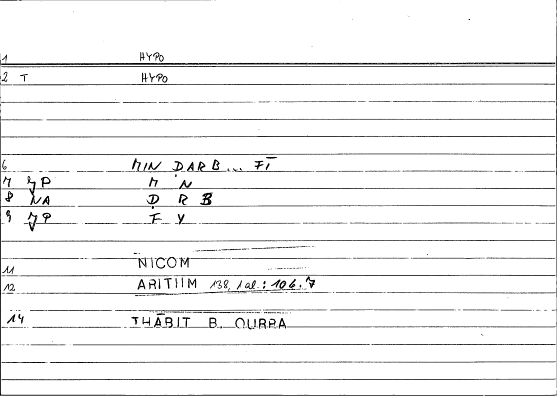 1 HYPO
2 T HYPO
6 MIN ḌARB... FĪ
7 JP M N
8 NA Ḍ R B
9 JP F Y
11 NICOM
12 ARITHM 138, 1 al.: 106.7
14 THĀBIT B. QURRA